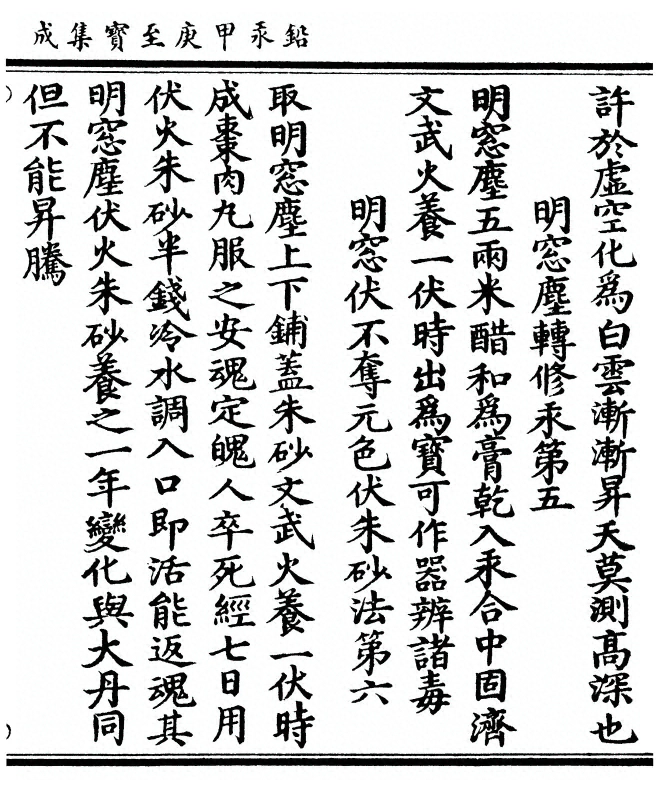 鉛汞甲庚至寶集成
許於虛空化爲白雲漸漸昇天莫測高深也
明窓塵轉修汞第五
明窓塵五兩米醋和爲膏乾入汞合中固濟
文武火養一伏時出爲寶可作器辨諸毒
明窓伏不奪元色伏朱砂法第六
取明窓塵上下鋪蓋朱砂文武火養一伏時
成棗肉丸服之安魂定魄人卒死經七日用
伏火朱砂半錢冷水調入口即活能返魂其
明窓塵伏火朱砂養之一年變化與大丹同
但不能昇騰